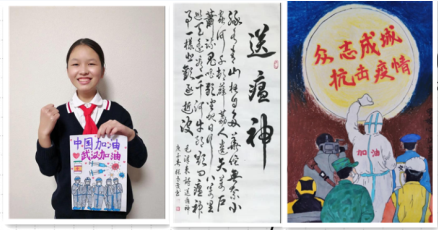 中国加油
武汉加油
送瘟神
绿水青山枉自多華佗無奈小
虫何千村薜荔人遺矢萬户
蕭疏鬼唱歌坐地日行八萬里
巡天遥看一千河牛郎欲問瘟神
事一樣悲歡逐逝波
众志成城
抗击疫情
加油